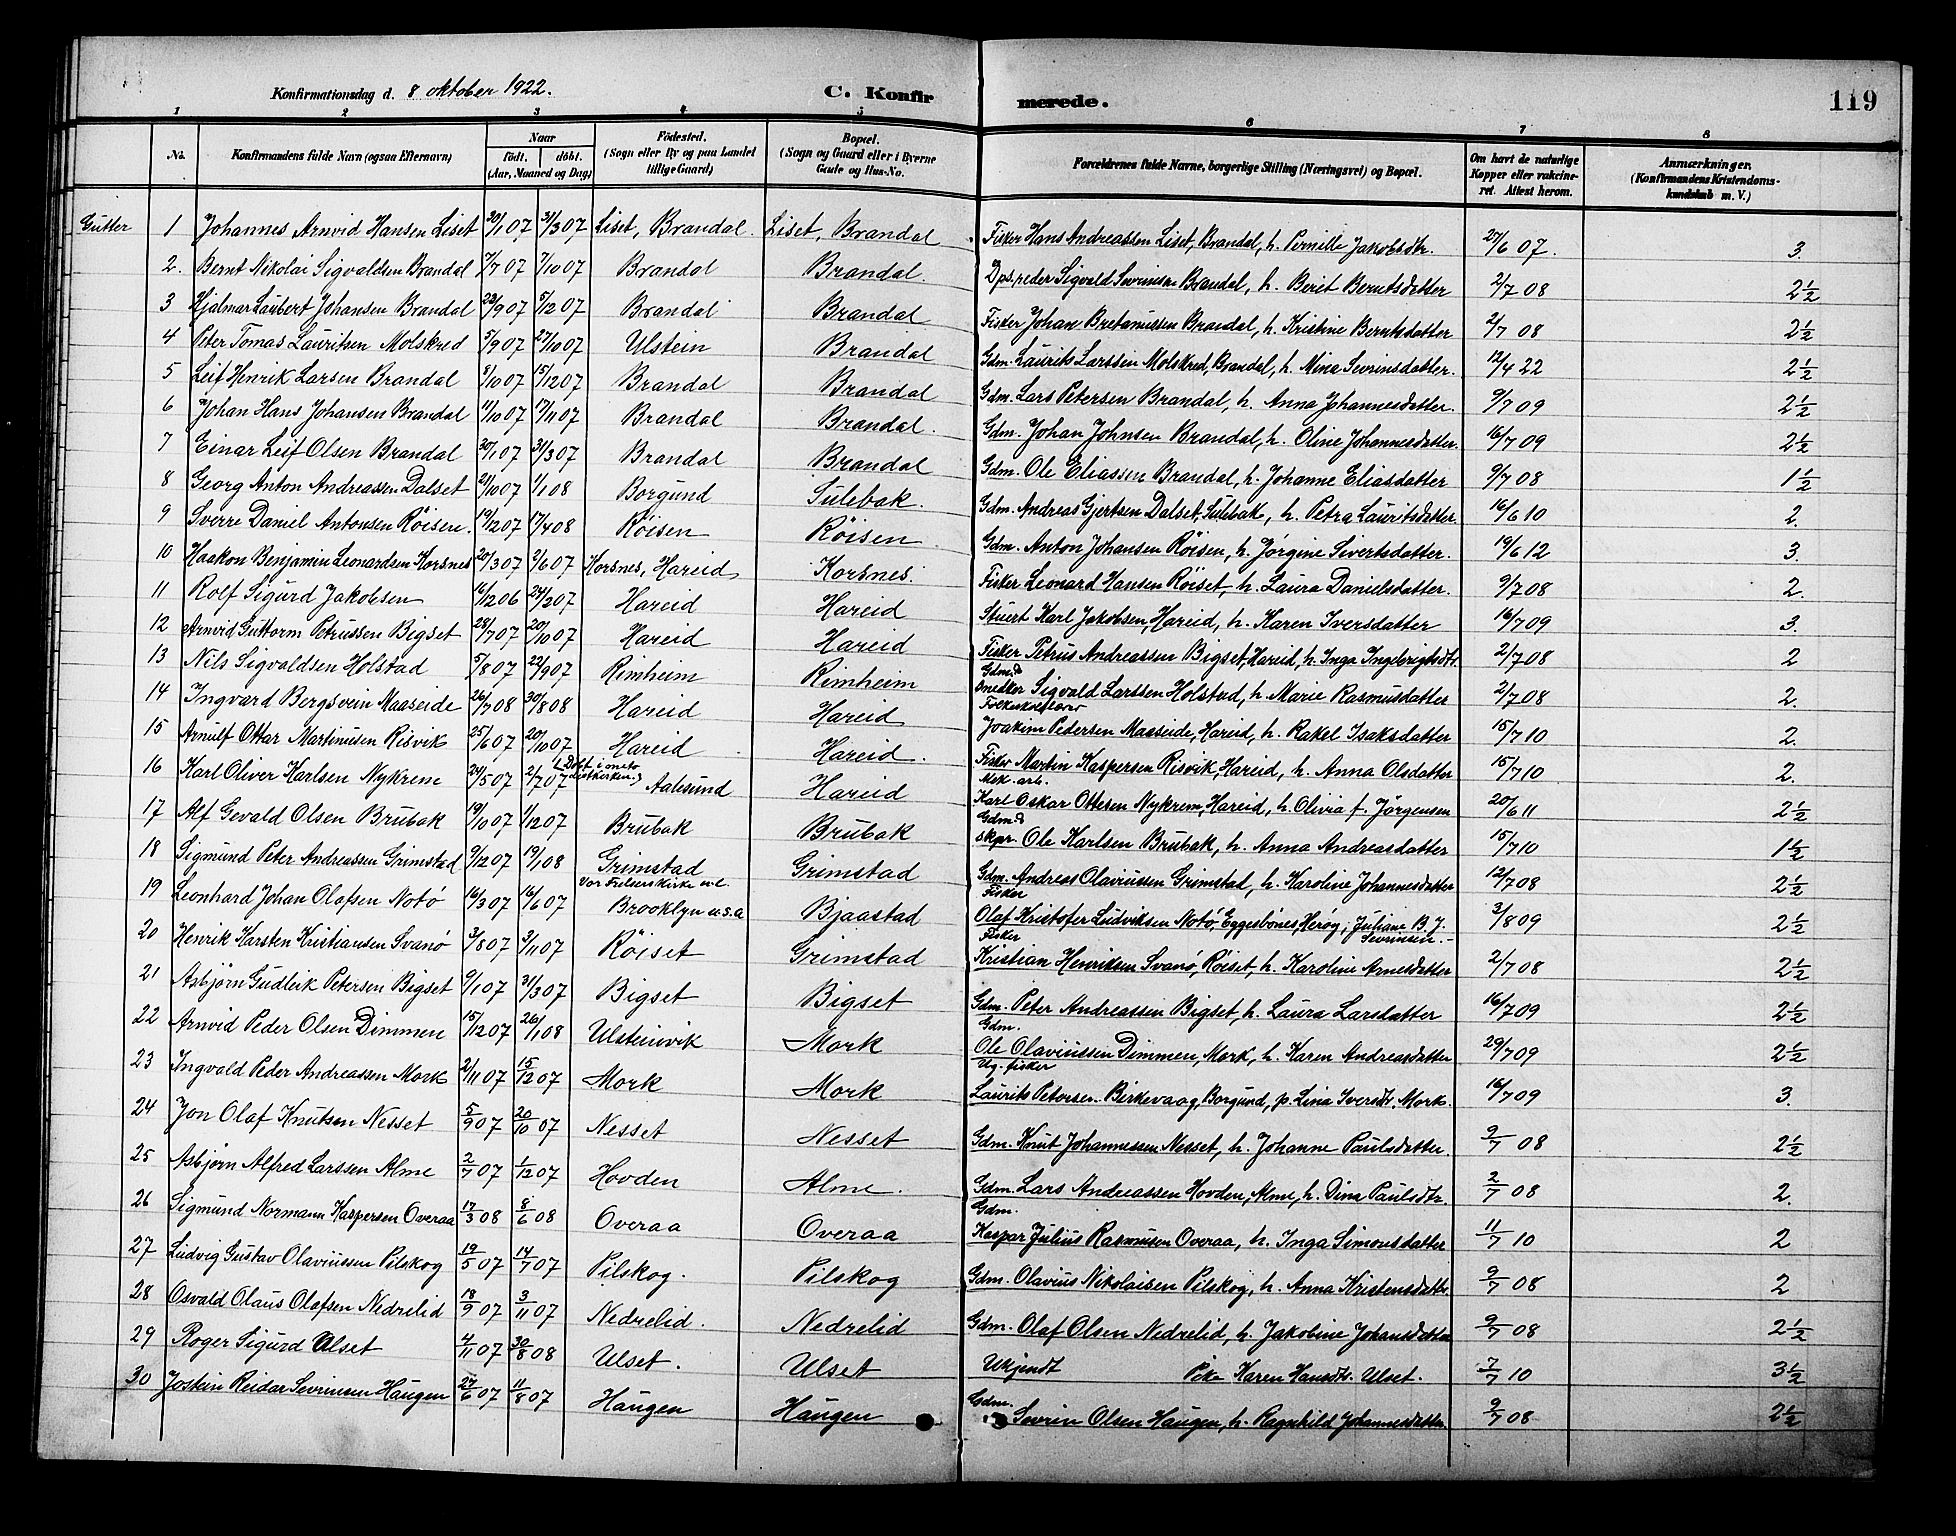 Konfirmationsdag d. 8 oktober 1922.
C. Konfir
merede.
119
1 2 3 4 5 6 7 8
No. Konfirmandens fulde Navn (ogsaa Efternavn) Naar födt. döbt. (Aar, Maaned og Dag) Födested. (Sogn eller By og paa Landet tillige Gaard) Bopæl. (Sogn og Gaard eller i Byerne Gade og Hus-No. Forældrenes fulde Navne, borgerlige Stilling (Næringsvei) og Bopæl. Om havt de naturlige Kopper eller vakcineret. Attest herom. Anmærkninger. (Konfirmandens Kristendomskundskab m. V.)
Gutter 1 Johannes Arnvid Hansen Liset 30/1 07 31/3 07 Liset, Brandal. Liset, Brandal Fisker Hans Andreassen Liset, Brandal, h. Pernille Jakobsdtr. 25/6 07. 3.
2. Bernt Nikolai Sigvaldsen Brandal 7/7 07 7/10 07 Brandal Brandal. Dps.reder Sigvald Sevrinsen Brandal, h. Berit Berntsdatter 2/7 08 2½
3 Hjalmar Laubert Johansen Brandal 22/9 07 5/12 07 Brandal Brandal Fisker Johan Bretanussen Brandal, h. Kristine Berntsdatter 2/7 08 2½
4 Peter Tomas Lauritsen Molskred 5/9 07 27/10 07 Ulstein Brandal Gdm. Laurits Larssen Molskred, Brandal, h. Mina Sevrinsdatter. 12/4 22 2½
5 Leif Henrik Larsen Brandal 8/10 07 15/12 07 Brandal Brandal Gdm. Lars Petersen Brandal, h. Anna Johannesdatter. 9/7 09 2½
6 Johan Hans Johansen Brandal 11/10 07 17/11 07 Brandal Brandal. Gdm. Johan Johnsen Brandal, h. Oline Johannesdatter. 16/7 09 2½
7 Einar Leif Olsen Brandal 30/1 07 31/3 07 Brandal Brandal Gdm. Ole Eliassen Brandal, h. Johanne Eliasdatter 9/7 08 1½
8 Georg Anton Andreassen Dalset 21/10 07 1/1 08 Borgund Sulebak. Gdm. Andreas Gjertsen Dalset, Sulebak, h. Petra Lauritsdatter. 16/6 10 2.
9 Sverre Daniel Antonsen Röisen. 19/12 07 17/4 08 Röisen Röisen Gdm. Anton Johansen Röisen, h. Jörgine Sivertsdatter. 19/6 12 3.
10 Haakon Benjamin Leonardsen Korsnes 20/3 07 2/6 07 Korsnes, Hareid Korsnes. Fisker Leonard Hansen Röiset, h. Laura Danielsdatter. 9/7 08 2.
11 Rolf Sigurd Jakobsen 16/12 06 24/3 07 Hareid Hareid Stuert Karl Jakobsen, Hareid, h. Karen Iversdatter 16/7 09 3.
12 Arnvid Guttorm Petrussen Bigset 28/7 07 20/10 07 Hareid Hareid Fisker Petrus Andreassen Bigset, Hareid, h. Inga Ingebrigtsdtr. 2/7 08 2
13 Nils Sigvaldsen Holstad 5/8 07 22/9 07 Rimheim Rimheim Gdm. & snedker Sigvald Larssen Holstad, h. Marie Rasmusdatter 2/7 08 2.
14 Ingvard Bergsvein Maaseide 26/7 08 30/8 08 Hareid Hareid Joakim Pedersen Maaseide, Hareid, h. Rakel Isaksdatter 15/7 10 2.
15 Arnulf Ottar Martinusen Risvik 25/6 07 20/10 07 Hareid Hareid. Fisker Martin Kaspersen Risvik, Hareid, h. Anna Olsdatter 15/7 10 2.
16 Karl Oliver Karlsen Nykrem 24/5 07 2/7 07 (Döbt i metodistkirken.) Aalesund Hareid Mek. arb. Karl Oskar Ottesen Nykrem, Hareid, h. Olivia f. Jörgensen 20/6 11 2½
17 Alf Gevald Olsen Brubak 19/10 07 1/12 07 Brubak Brubak Gdm. & skpr. Ole Karlsen Brubak, h. Anna Andreasdatter 15/7 10 1½
18 Sigmund Peter Andreassen Grimstad 9/12 07 19/1 08 Grimstad Grimstad Gdm. Andreas Olaviussen Grimstad, h. Karoline Johannesdatter 12/7 08 2½
19 Leonhard Johan Olafsen Notö 16/3 07 16/6 07 Vor Frelsers kirke ev.l. Brooklyn u.s.a Bjaastad Fisker Olaf Kristofer Ludviksen Notö, Eggesbönes, Heröy, Juliane B. J. Sevrinsen.- 3/8 09 2½
20 Henrik Karsten Kristiansen Svanö 3/8 07 3/11 07 Röiset Grimstad Fisker Kristian Henriksen Svanö, Röiset, h. Karoline Arnesdatter 2/7 08 2½
21 Asbjörn Gudleik Petersen Bigset 9/1 07 31/3 07 Bigset Bigset Gdm. Peter Andreassen Bigset, h. Laura Larsdatter 16/7 09 2½
22 Arnvid Peder Olsen Dimmen 15/12 07 26/1 08 Ulsteinvik Mork Gdm. Ole Olaviussen Dimmen, Mork, h. Karen Andreasdatter 29/7 09 2½
23 Ingvald Peder Andreassen Mork 2/11 07 15/12 07 Mork Mork Ug. fisker Laurits Petersen Birkevaag, Borgund, p. Lina Iversdtr. Mork. 16/7 09 3.
24 Jon Olaf Knutsen Nesset 5/9 07 20/10 07 Nesset Nesset Gdm. Knut Johannessen Nesset, h. Johanne Paulsdatter 9/7 08 2½
25 Asbjörn Alfred Larssen Alme 2/7 07 1/12 07 Hovden Alme. Gdm. Lars Andreassen Hovden, Alme, h. Dina Paulsdtr. 2/7 08 2.
26 Sigmund Normann Kaspersen Overaa 17/3 08 8/6 08 Overaa Overaa Gdm. Kaspar Julius Rasmusen Overaa, h. Inga Simonsdatter 11/7 10 2
27 Ludvig Gustav Olaviussen Pilskog 19/5 07 14/7 07 Pilskog. Pilskog Gdm. Olavius Nikolaisen Pilskog, h. Anna Kristensdatter 9/7 08 2
28 Osvald Olaus Olafsen Nedrelid 18/9 07 3/11 07 Nedrelid. Nedrelid Gdm. Olaf Olsen Nedrelid, h. Jakobine Johansdatter 9/7 08 2½
29 Roger Sigurd Ulset 4/11 07 30/8 08 Ulset. Ulset Ukjendt Pike Karen Hansdtr. Ulset. 7/7 10 3½
30 Jostein Reidar Sevrinsen Haugen 27/6 07 11/8 07 Haugen Haugen Gdm. Sevrin Olsen Haugen, h. Ragnhild Johannesdatter. 9/7 08 2½